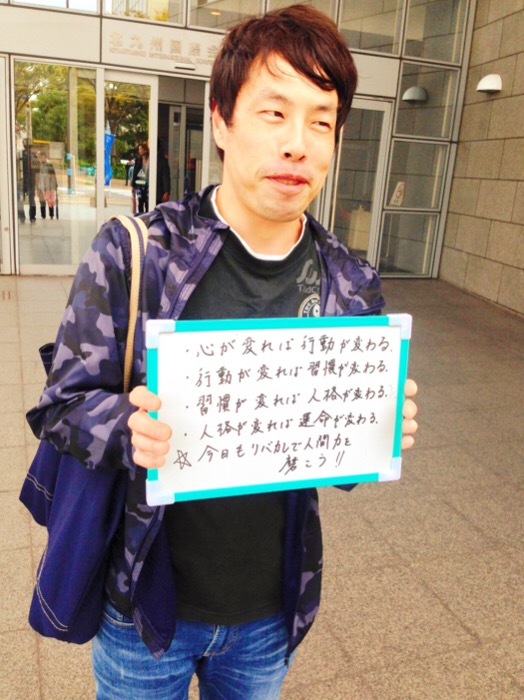 北九州国際会
・心が変れば行動が変わる。
・行動が変れば習慣が変わる。
・習慣が変れば人格が変わる。
・人格が変れば運命が変わる。
☆今日もリバカレで人間力を
磨こう!!